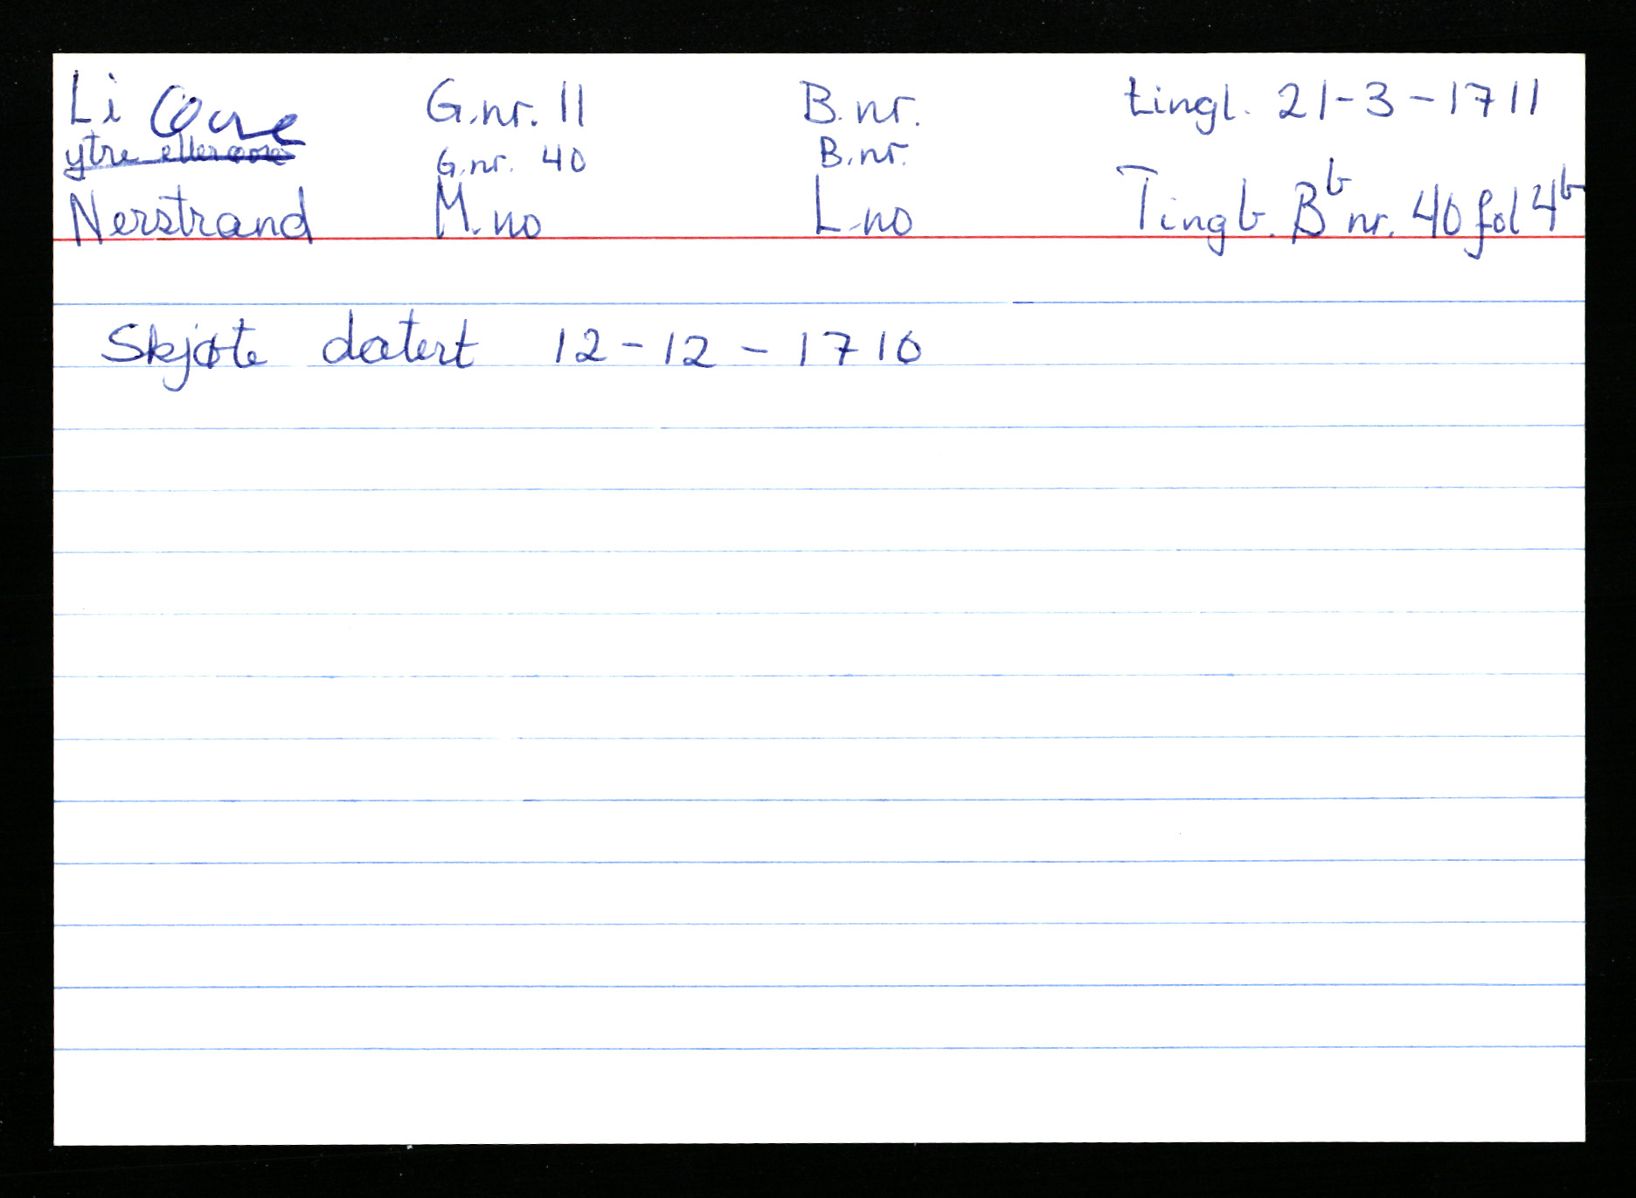 Li Øvre G.nr. 11 B.nr. tingl. 21-3-1711
ytre eller øvre G.nr. 40 B.nr.
Nerstrand M.no L.no Tingb. Bb nr. 40 fol 4b
Skjøte datert 12-12-1710